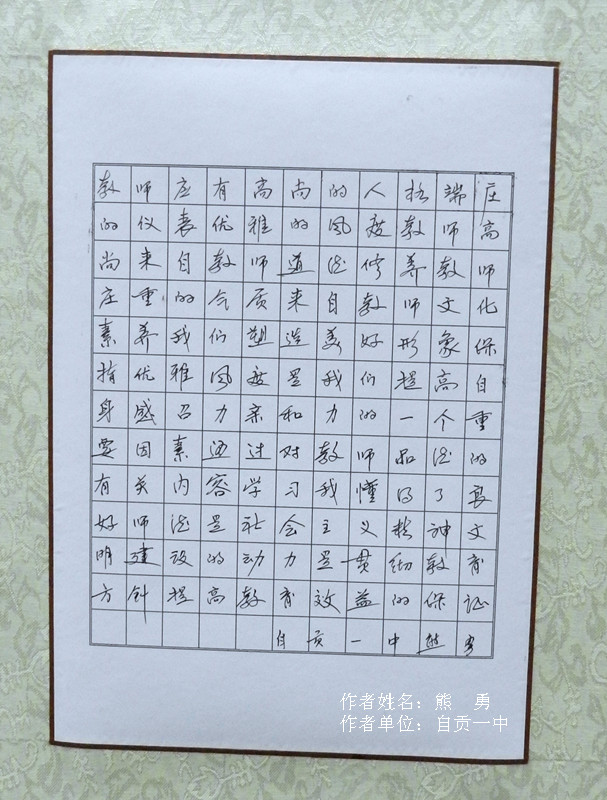 教师应有高尚的人格端庄
的仪表优雅的风度教师高
尚来自教师道德修养教师
庄重的气质来自教师文化
素养我们塑造美好形象保
持优雅风度是我们提高自
身感召力亲和力的一个重
要因素通过对教师品德的
有关内容学习我懂得了良
好师德是社会主义精神文
明建设的动力是贯彻教育
方针提高教育效益的保证
自贡一中熊勇
作者姓名：熊 勇
作者单位：自贡一中